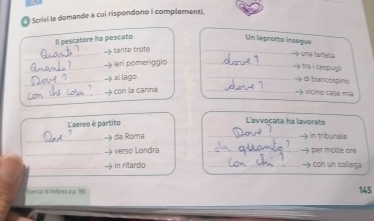 4 Scrivi le domande a cui rispondono i complementi.
Il pescatore ha pescato
Quante? → tante trote
Quando? → ieri pomeriggio
Dove? → al lago
con che cosa? → con la canna
Un leprotto insegue
→ una farfalla
dove? → tra i cespugli
→ di biancospino
dove? → vicino casa mia
L'aereo è partito
Dove? → da Roma
→ verso Londra
→ in ritardo
L'avvocata ha lavorato
Dove? → in tribunale
da quanto? → per molte ore
Con chi? → con un collega
145